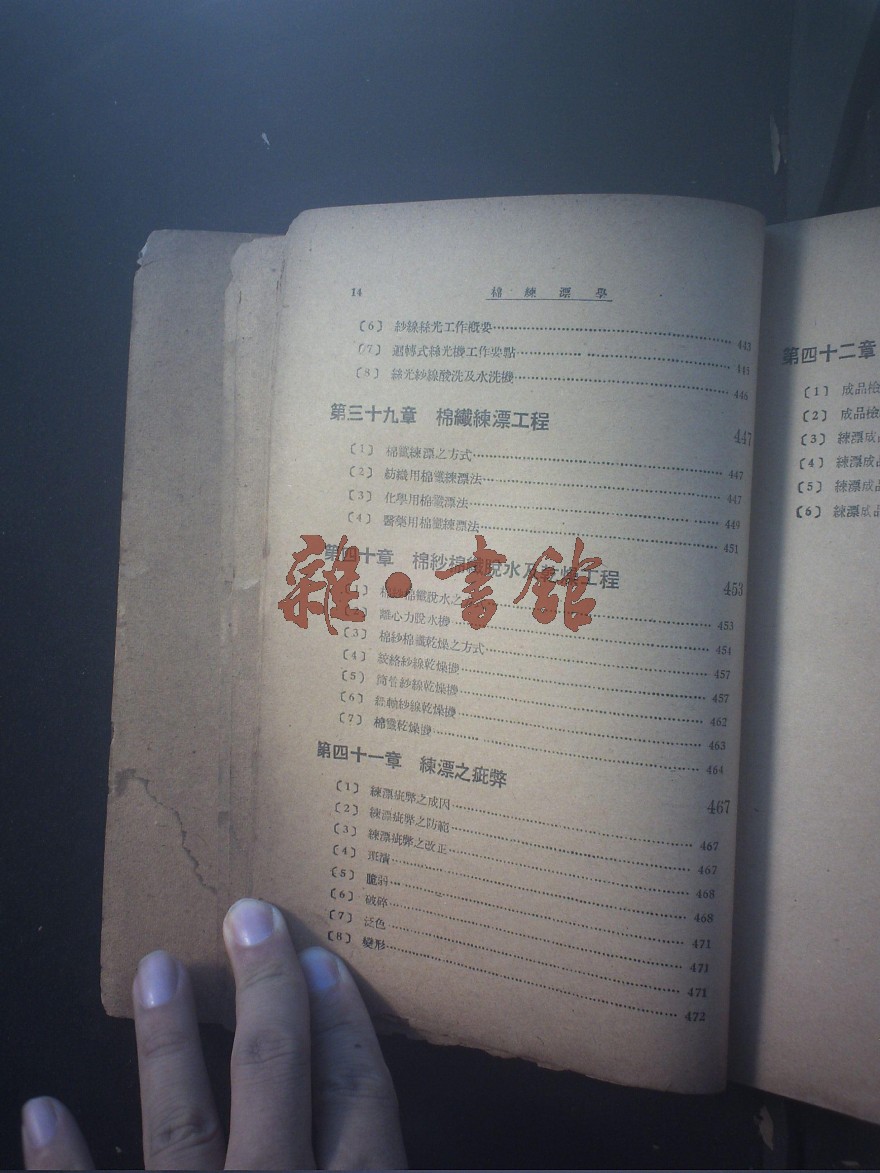 14 棉練漂學
〔6〕 紗線絲光工作概要 443
〔7〕 迴轉式絲光機工作要點 445
〔8〕 絲光紗線酸洗及水洗機 446
第三十九章 棉纖練漂工程 447
〔1〕 棉纖練漂之方式 447
〔2〕 紡織用棉纖練漂法 447
〔3〕 化學用棉纖漂法 449
〔4〕 醫藥用棉纖練漂法 451
第四十章 棉紗棉纖脫水及乾燥工程 453
〔1〕 棉紗棉纖脫水之 453
〔2〕 離心力脫水機 454
〔3〕 棉紗棉纖乾燥之方式 457
〔4〕 絞絡紗線乾燥機 457
〔5〕 筒管紗線乾燥機 462
〔6〕 經軸紗線乾燥機 463
〔7〕 棉纖乾燥機 464
第四十一章 練漂之疵弊 467
〔1〕 練漂疵弊之成因 467
〔2〕 練漂疵弊之防範 467
〔3〕 練漂疵弊之改正 468
〔4〕 468
〔5〕 脆弱 471
〔6〕 破碎 471
〔7〕 泛色 471
〔8〕 變形 472
第四十二章
〔1〕 成品檢
〔2〕 成品檢
〔3〕 練漂成
〔4〕 練漂成品
〔5〕 練漂成品
〔6〕 練漂成品
雜·書館